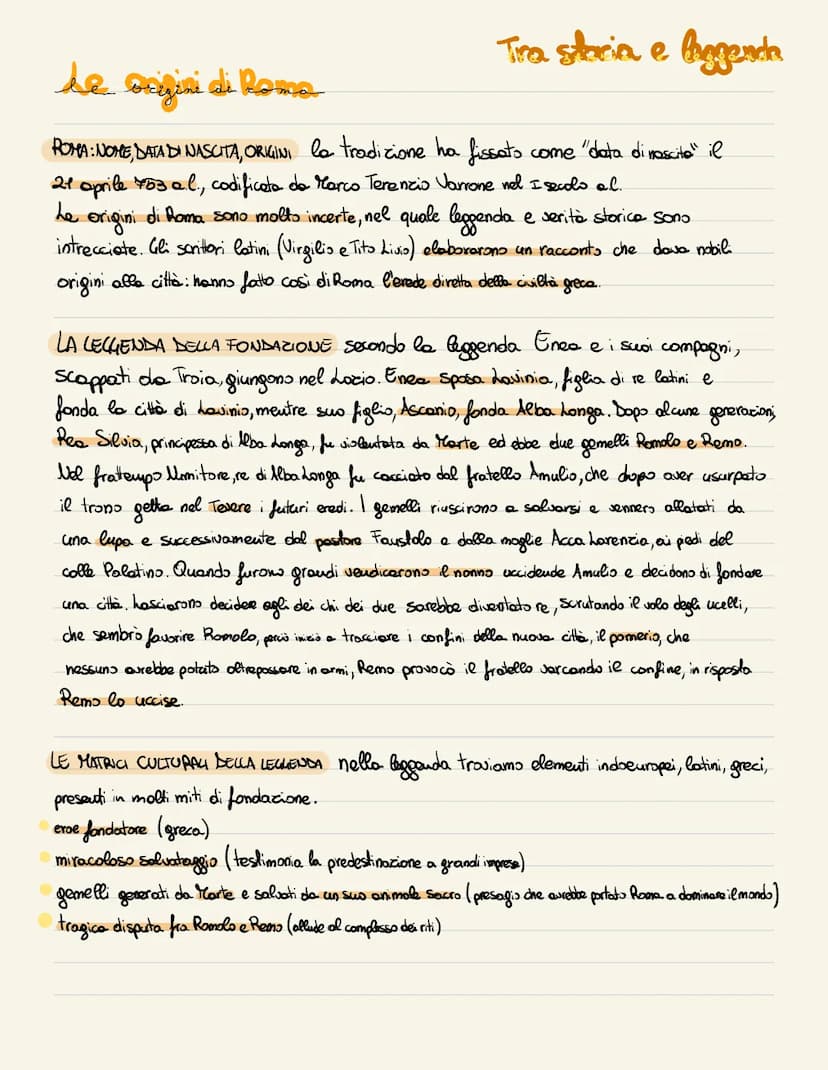 Tra storia e leggenda
Le origini di Roma
ROMA: NOME, DATA DI NASCITA, ORIGINI la tradizione ha fissato come "data di nascita" il
21 aprile 753 a.C., codificata da Marco Terenzio Varrone nel I secolo a.C.
Le origini di Roma sono molto incerte, nel quale leggenda e verità storica sono
intrecciate. Gli scrittori latini (Virgilio e Tito Livio) elaborarono un racconto che dava nobili
origini alla città: hanno fatto così di Roma l'erede diretta della civiltà greca.
LA LEGGENDA DELLA FONDAZIONE secondo la leggenda Enea e i suoi compagni,
scappati da Troia, giungono nel Lazio. Enea sposa Lavinia, figlia di re latini e
fonda la città di Lavinio, mentre suo figlio, Ascanio, fonda Alba Longa. Dopo alcune generazioni,
Rea Silvia, principessa di Alba Longa, fu violentata da Marte ed ebbe due gemelli Romolo e Remo.
Nel frattempo Numitore, re di Alba Longa fu cacciato dal fratello Amulio, che dopo aver usurpato
il trono getta nel Tevere i futuri eredi. I gemelli riuscirono a salvarsi e vennero allatati da
una lupa e successivamente dal pastore Faustolo e dalla moglie Acca Lorenzia, ai piedi del
colle Palatino. Quando furono grandi vendicarono il nonno uccidende Amulio e decidono di fondare
una città. Lasciarono decidere agli dei chi dei due sarebbe diventato re, scrutando il volo degli ucelli,
che sembrò favorire Romolo, perciò iniziò a tracciare i confini della nuova città, il pomerio, che
nessuno avrebbe potuto oltrepassare in armi, Remo provocò il fratello varcando il confine, in risposta
Remo lo uccise.
LE MATRICI CULTURALI DELLA LEGGENDA nella leggenda troviamo elementi indoeuropei, latini, greci,
presenti in molti miti di fondazione.
eroe fondatore (greca)
miracoloso salvataggio (testimonia la predestinazione a grandi imprese)
gemelli generati da Marte e salvati da un suo animale sacro (presagio che avrebbe portato Roma a dominare il mondo)
tragica disputa fra Romolo e Remo (allude al complesso dei riti)